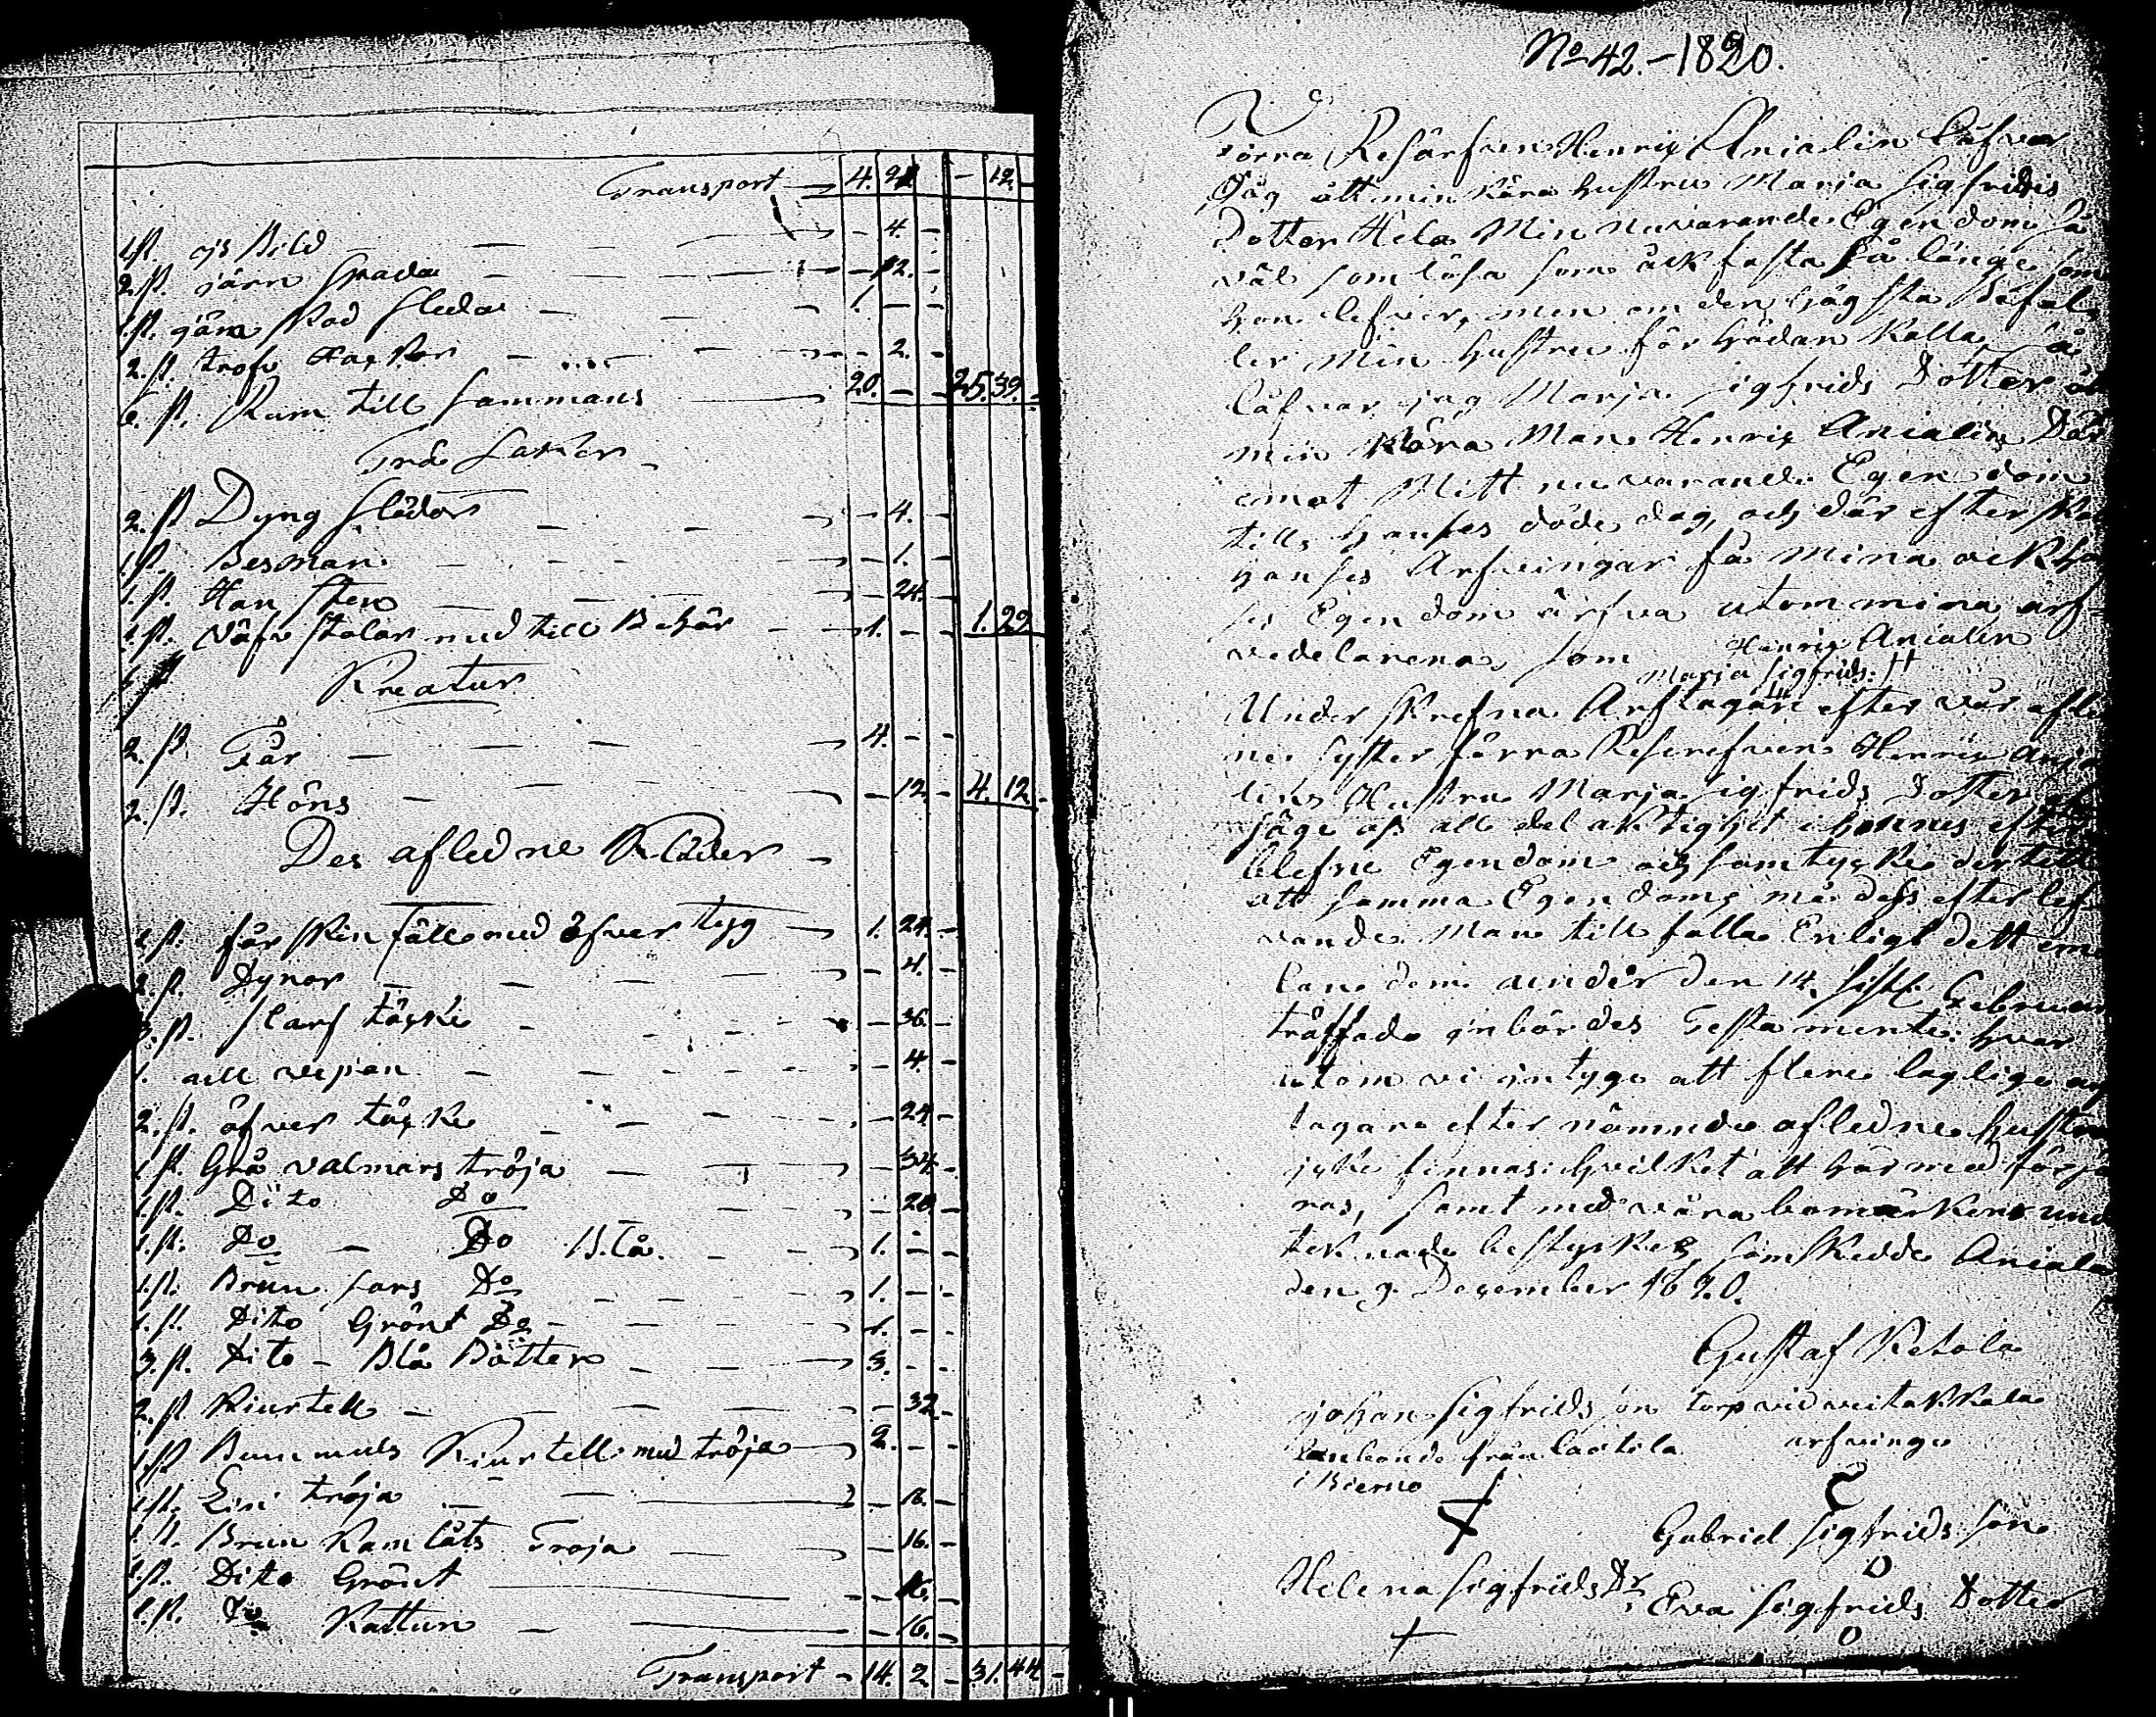 Transport 4. 21 - 12.
1.st. is Bild - 4. -
2.st. järn Spada - 12. -
1.st. järn skod Sleda 1. - -
2.st. - 2. -
6.st. Rum till Sammans 20. - - 25.39.
Trä Saker
2.st Dyng Slädor - 4. -
1.st. Besman - 1. -
1.st. - 24. -
1.st. Väfv stolar med till Behör 1. - - 1.29
Kreatur
2.st. Får 4. - -
2.st. Höns - 12. - 4. 12
Des afledne Kläder
1.st. fårskin fäll med öfver tyg 1. 24. -
2.st. Dynor - 4. -
3.st. Slarf täcke - 36. -
1. - 4. -
2.st. öfver täcke - 24 -
1.st. Grå valmars tröja - 34. -
1.st. Dito Do - 20 -
1.st. Do - Do Blå 1. - -
1.st. Brun Sars Do 1. - -
1.st. Dito Grönt Do 1. - -
3.st. Dito - Blå 3. - -
2.st. Kiurtell - 32 -
1.st Bummuls Kiurtell med tröja 2. - -
1.st. Lin tröja - 16. -
1.st. Brun Kamlåts Troja - 16. -
1.st. Dito Grönt - 16. -
1.st. Do Kattun - 16. -
Transport - 14. 2. - 31. 44 -
No 42. - 1820.
Förra Henrix Anialin låfvar
Jag att min kära hustru Marja Sigfrids
Dotter Hela Min nuvarande Egendom Så
väl som lösa som åck fasta så länge som
hon lefver, men om den högsta Befal
ler Min hustru för hädan Kalla, så
låfvar jag Marja Sigfrids Dotter åt
min Kära Man Henrix Anialin Där
emot Mitt nuvarande Egendom
till hanses döde dag, och där efter ska
hanses Arfvingar få mina
Egendom ärfva utom mina arf-
vedelarena, som Henrix Anialin
Marja Sigfrids:
Under skrefna Arftagare efter vår afled
ne syster förra Henrix Anja
lins Hustru Marja Sigfrids Dotter
säge oss all delaktighet i hennes efter
blefne Egendom och samtycke der till
att samma Egendom må dess efter lef
vande Man till falla Enligt dett em
lan dem under den 14. sistl. Februar
träffade inbördes Testamente: hvar
utom vi intyge att flere laglige
tagare efter nämnde afledne hustru
icke finnas: hvilket att här med
ras, samt med våra bomärkens und
teknade bestyrkes, som skedde Aniala
den 9. December 1820.
Gustaf Ketola
Johan Sigfrids son torp vid
från Laitila arfvinge
i Bierno
Gabriel Sigfrids son
Helena Sigfrids Dr. Eva Sigfrids Dotter